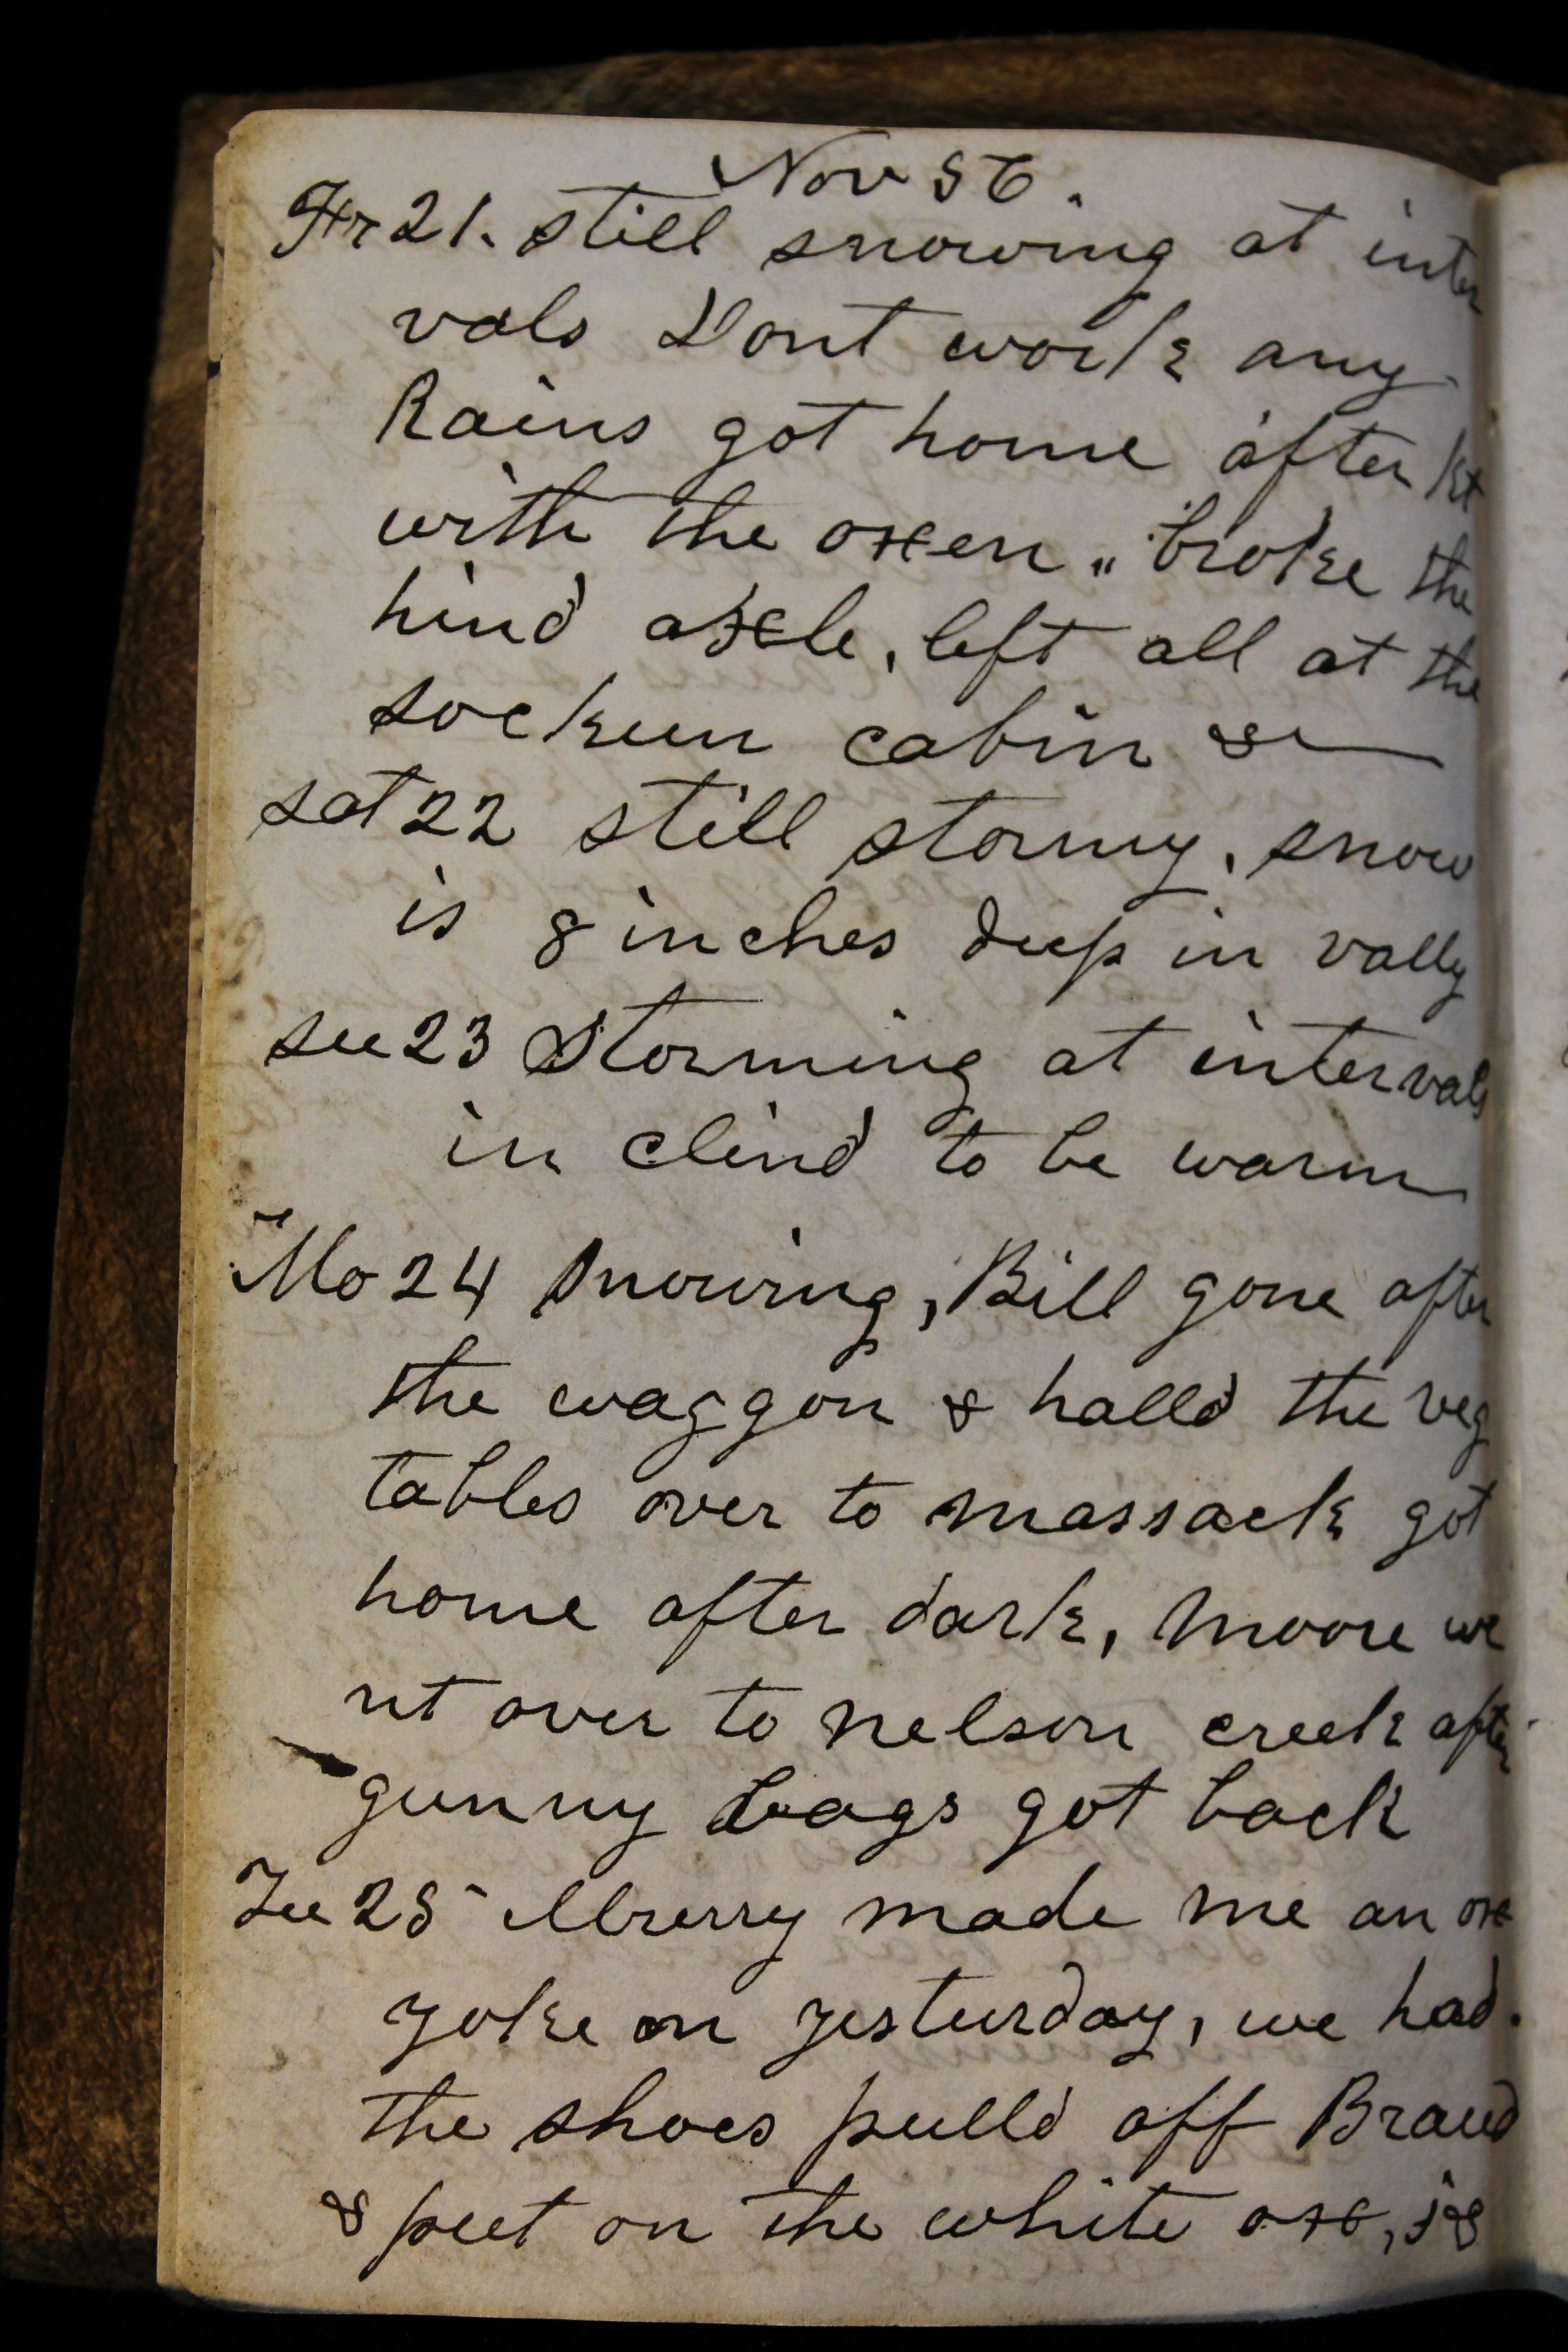 Nov 56.
Fr 21. still snowing at inter
vals Dont work any
Rains got home after
with the oxen " broke the
hind axle, left all at the
sockum cabin &
sat 22 still stormy, snow
is 8 inches deep in vally
su 23 Storming at intervals
in clind to be warm
Mo 24 Snowing, Bill gone after
the waggon & halld the veg
tables over to massack got
home after dark, Moore we
nt over to nelson creek after
gunny bags got back
Tu 25 Mrerry made me an ox
yoke on yesturday, we had
the shoes pulld off Brand
& put on the white ox,